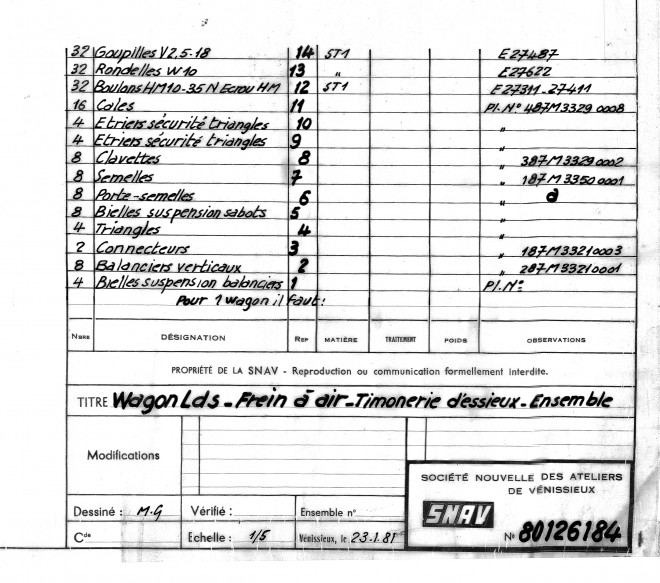 32 Goupilles V2,5-18 14 ST1 E27487
32 Rondelles W10 13 " E27622
32 Boulons HM10-35 N Ecrou HM 12 ST1 E27311-27411
16 Cales 11 Pl. N° 487M33290008
4 Etriers sécurité triangles 10 "
4 Etriers sécurité triangles 9 "
8 Clavettes 8 " 387M33290002
8 Semelles 7 " 187M33500001
8 Porte-semelles 6 "
8 Bielles suspension sabots 5 "
4 Triangles 4 "
2 Connecteurs 3 " 187M33210003
8 Balanciers verticaux 2 " 287M33210001
4 Bielles suspension balanciers 1 Pl. N°
Pour 1 wagon il faut:
NBRE DÉSIGNATION REP MATIÈRE TRAITEMENT POIDS OBSERVATIONS
PROPRIÉTÉ DE LA SNAV - Reproduction ou communication formellement interdite.
TITRE Wagon Lds - Frein à air - Timonerie d'essieux - Ensemble
Modifications
SOCIÉTÉ NOUVELLE DES ATELIERS
DE VÉNISSIEUX
SNAV
N° 80126184
Dessiné : M.G Vérifié : Ensemble n°
Cde Echelle : 1/5 Vénissieux, le 23.1.81